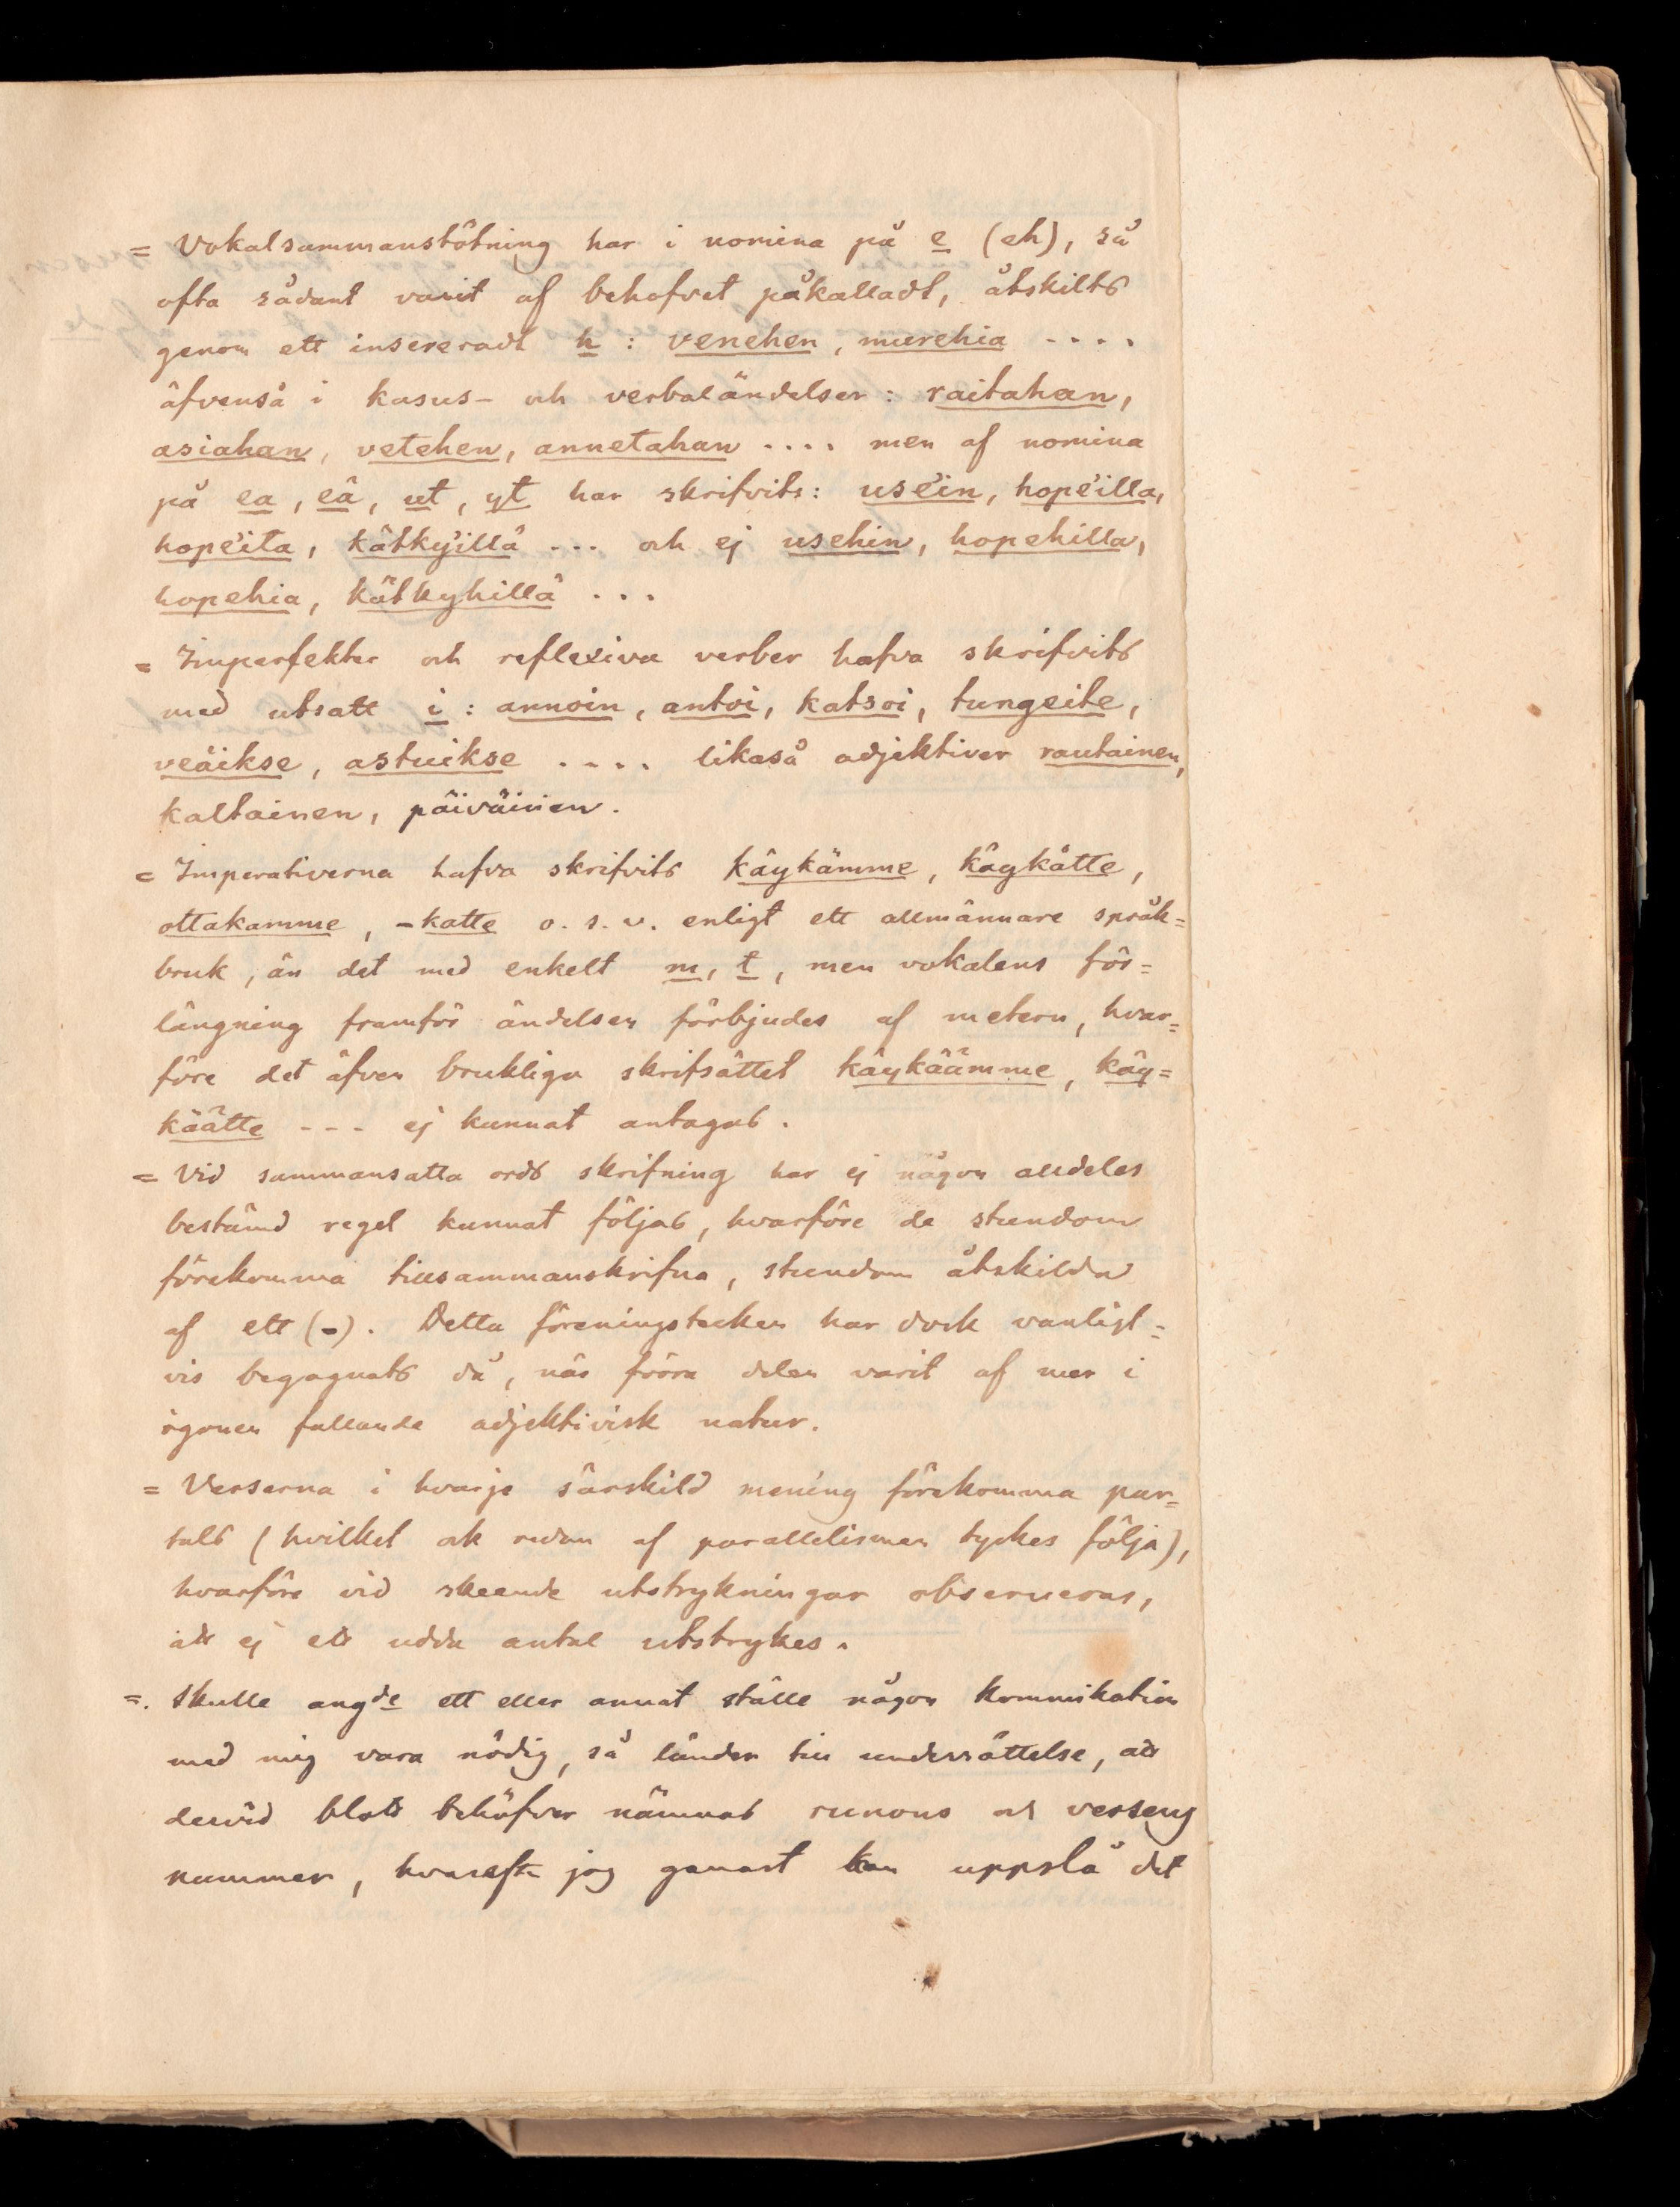 = Vokalsammanstötning har i nomina på e (eh), så
ofta sådant varit af behofvet påkalladt, åtskilts
genom ett insereradt h : venehen, murehia ....
äfvenså i kasus- och verbaländelser : raitahan,
asiahan, vetehen, annetahan .... men af nomina
på ea, eä, ut, yt har skrifvits: use'in, hope'illa,
hope'ita, kätky'illä ... och ej usehin, hopehilla,
hopehia, kätkyhillä ...
= Imperfekter och reflexiva verber hafva skrifvits
med utsatt i : annoin, antoi, katsoi, tungeite,
veäikse, astuikse .... likaså adjektiver rautainen,
kaltainen, päiväinen.
= Imperativerna hafva skrifvits käykämme, käykätte,
ottakamme, -katte o. s. v. enligt ett allmännare språk=
bruk, än det med enkelt m, t, men vokalens för=
längning framför ändelsen förbjudes af metern, hvar=
före det äfven brukliga skrifsättet käykäämme, käy=
käätte --- ej kunnat antagas.
= Vid sammansatta ords skrifning har ej någon alldeles
bestämd regel kunnat följas, hvarföre de stundom
förekomma tillsammanskrifna, stundom åtskilda
af ett (-). Detta föreningstecken har dock vanligt=
vis begagnats då, när förra delen varit af mer i
ögonen fallande adjektivisk natur.
= Verserna i hvarje särskild mening förekomma par=
tals (hvilket ock redan af parallelismen tyckes följa),
hvarföre vid skeende utstrykningar observeras,
att ej ett udda antal utstrykes.
=. Skulle angde ett eller annat ställe någon kommikation
med mig vara nödig, så länder till underrättelse, att
dervid blott behöfver nämnas runons och versens
nummer, hvarefter jag genast kan uppslå det